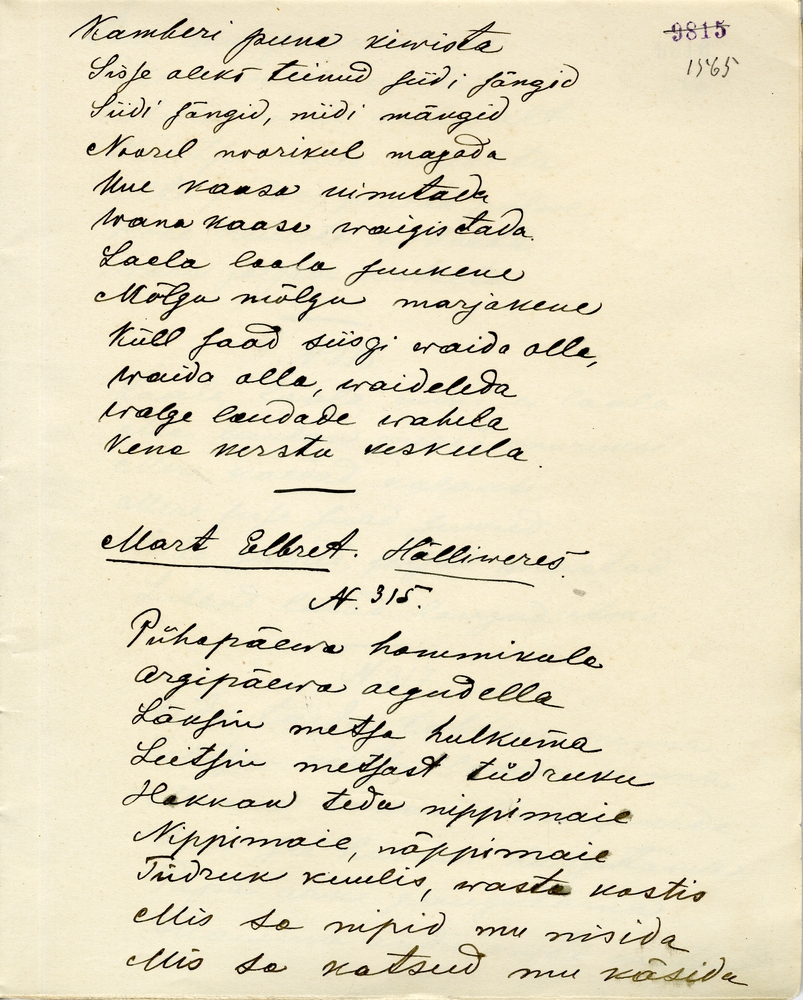 9815
1565
Kamberi puna kiwista
Sisse oleks teinud siidi sängid
Siidi sängid, niidi mängid
Noorel noorikul magada
Uue kaasa uinutada
Wana kaase waigistada.
Laela laola suukene
Mõlgu mõlgu marjakene
Küll saad siisgi waida olla,
waida olla, waidelela
walge laudade wahela
Vene versta keskella.
Mart Elbret. Hälliweres.
N. 315.
Pühapäewa hommikula
Argipäewa aegudella
Läksin metsa hulkuma
Leitsin metsast tüdruku
Hakkan teda nippimaie
Nippimaie, näppimaie
Tüdruk kuulis, wasta kostis
Mis sa nipid mu nisida
Mis sa katsud mu käsida